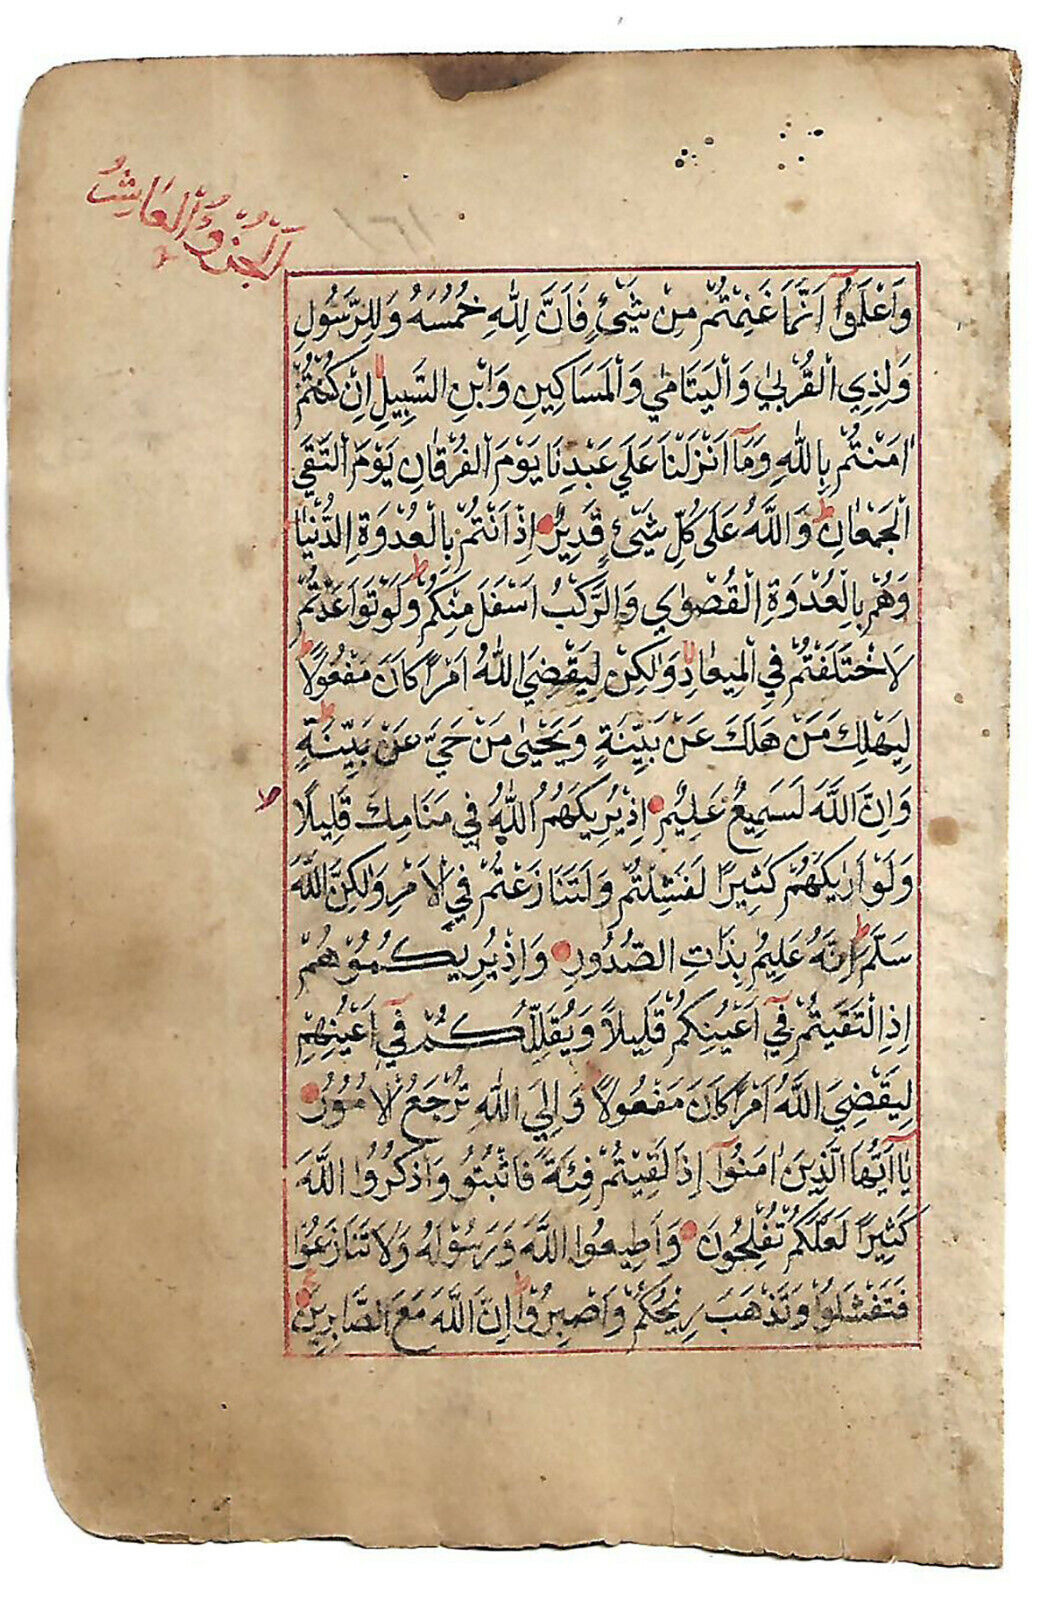 الجزؤ العاشر
وَاَعْلَمُوآ اَنَّمَا غَنِمْتُمْ مِنْ شَيْئٍ فَاَنَّ لِلّٰهِ خُمُسَهُ وَلِلرَّسُولِ
وَلِذِي الْقُرْبٰي وَالْيَتَامٰي وَالْمَسَاكِينِ وَابْنِ السَّبِيلِ اِنْ كُنْتُمْ
اٰمَنْتُمْ بِاللّٰهِ وَمَآ اَنْزَلْنَا عَلَي عَبْدِنَا يَوْمَ الْفُرْقَانِ يَوْمَ الْتَقَي
الْجَمْعَانِ ط وَاللَّهُ عَلَى كُلِّ شَيْئٍ قَدِيرٌ اِذْ اَنْتُمْ بِالْعُدْوَةِ الدُّنْيَا
وَهُمْ بِالْعُدْوَةِ الْقُصْوٰي وَالرَّكْبُ اَسْفَلَ مِنْكُمْ ط وَلَوْ تَوَاعَدْتُمْ
لَاخْتَلَفْتُمْ فِي الْمِيعَادِ لا وَلٰكِنْ لِيَقْضِيَ اللّٰهُ اَمْرًا كَانَ مَفْعُولًا ط
لِيَهْلِكَ مَنْ هَلَكَ عَنْ بَيِّنَةٍ وَيَحْيٰى مَنْ حَيَّ عَنْ بَيِّنَةٍ ط
وَاِنَّ اللَّهَ لَسَمِيعٌ عَلِيمٌ اِذْ يُرِيكَهُمُ اللّٰهُ فِي مَنَامِكَ قَلِيلًا ط
وَلَوْ اَرٰيكَهُمْ كَثِيرًا لَفَشِلْتُمْ وَلَتَنَازَعْتُمْ فِي الْاَمْرِ وَلٰكِنَّ اللّٰهَ
سَلَّمَ ط اِنَّهُ عَلِيمٌ بِذَاتِ الصُّدُورِ وَاِذْ يُرِيكُمُوهُمْ
اِذِ الْتَقَيْتُمْ فِيٓ اَعْيُنِكُمْ قَلِيلًا وَيُقَلِّلُكُمْ فِيٓ اَعْيُنِهِمْ
لِيَقْضِيَ اللَّهُ اَمْرًا كَانَ مَفْعُولًا ط وَاِلَي اللّٰهِ تُرْجَعُ الْاُمُورُ
يَآ اَيُّهَا الَّذِينَ اٰمَنُوآ اِذَا لَقِيتُمْ فِئَةً فَاثْبُتُو وَاذْكُرُوا اللَّهَ
كَثِيرًا لَعَلَّكُمْ تُفْلِحُونَ وَاَطِيعُوا اللَّهَ وَرَسُولَهُ وَلَا تَنَازَعُوا
فَتَفْشَلُوا وَتَذْهَبَ رِيحُكُمْ وَاصْبِرُوا ط اِنَّ اللَّهَ مَعَ الصَّابِرِينَ ع